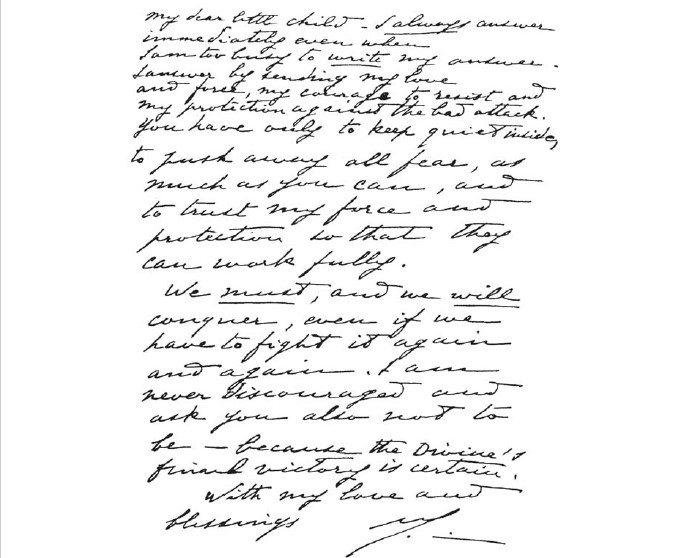 My dear little child – I always answer
immediately even when
I am too busy to write my answer.
I answer by sending my love
and force, my courage to resist and
my protection against the bad attack.
You have only to keep quiet inside,
to push away all fear, as
much as you can, and
to trust my force and
protection so that they
can work fully.
We must, and we will
conquer, even if we
have to fight it again
and again. I am
never discouraged and
ask you also not to
be – because the Divine's
final victory is certain.
With my love and
blessings